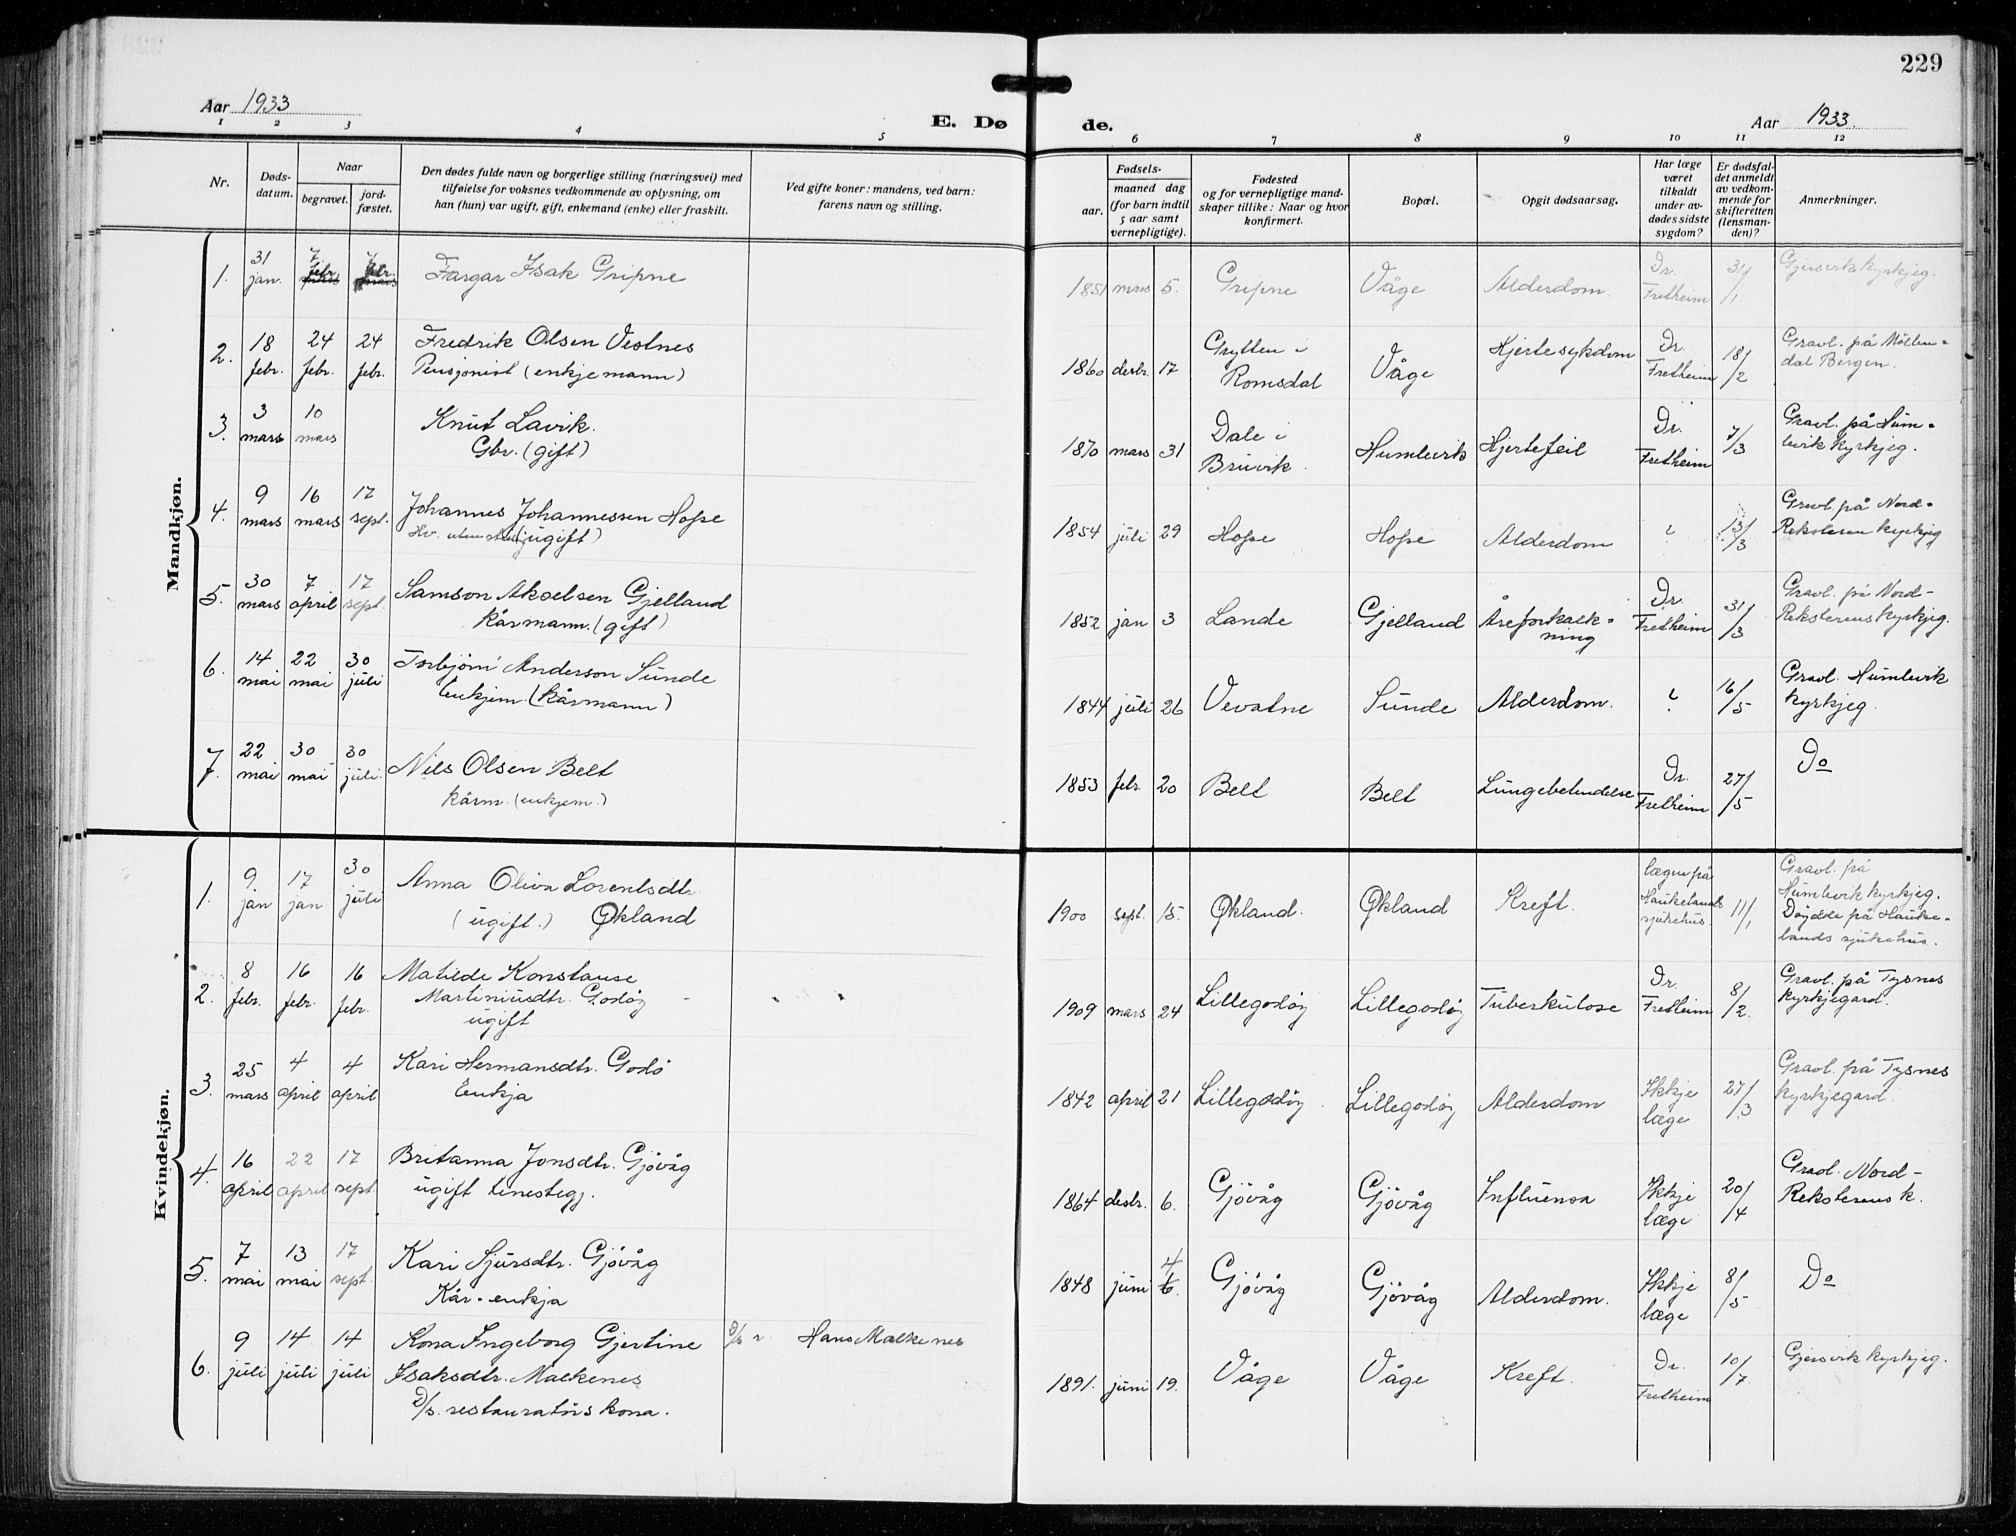 229
Aar 1933
E. Dø
de.
Aar 1933.
1 2 3 4 5 6 7 8 9 10 11 12
Nr.
Døds-
datum.
Naar
begravet.
jord-
fæstet.
Den dødes fulde navn og borgerlige stilling (næringsvei) med
tilføielse for voksnes vedkommende av oplysning, om
han (hun) var ugift, gift, enkemand (enke) eller fraskilt.
Ved gifte koner: mandens, ved barn:
farens navn og stilling.
Fødsels-
aar.
maaned dag
(for barn indtil
5 aar samt
vernepligtige).
Fødested
og for vernepligtige mand-
skaper tillike: Naar og hvor
konfirmert.
Bopæl.
Opgit dødsaarsag.
Har læge
været
tilkaldt
under av-
dødes sidste
sygdom?
Er dødsfal-
det anmeldt
av vedkom-
mende for
skifteretten
(lensman-
den)?
Anmerkninger.
Mandkjøn.
1. 31 jan. 7 febr. 7 febr. Fargar Isak Gripne
1851 mars 5. Gripne Våge Alderdom. Dr. Fretheim 31/1 Gjersvik kyrkjeg.
2. 18 febr. 24 febr. 24 febr. Fredrik Olsen Vestnes
Pensjonist (enkjemann)
1860 desbr. 17 Grytten i Romsdal Våge Hjertesykdom Dr. Fretheim 18/2 Gravl. på Möllen-
dal Bergen.
3. 3 mars 10 mars Knut Lavik.
Gbr. (gift)
1870 mars 31 Dale i Bruvik. Humlevik Hjertefeil Dr. Fretheim 7/3 Gravl. på Hum-
levik kyrkjeg.
4. 9 mars 16 mars 17 sept. Johannes Johannessen Hope
(ugift)
1854 juli 29 Hope Hope Alderdom ? 13/3 Gravl. på Nord-
Reksteren kyrkjeg
5. 30 mars 7 april 17 sept. Samson Akselsen Gjelland
Kårmann. (gift)
1852 jan 3 Lande Gjelland Åreforkalk-
ning Dr. Fretheim 31/3 Gravl. på Nord-
Reksterens kyrkjeg.
6. 14 mai 22 mai 30 juli Torbjörn Anderson Sunde
Enkjem. (kårmann)
1844 juli 26 Vevatne Sunde Alderdom. ? 16/5 Gravl. Humlevik
kyrkjeg.
7. 22 mai 30 mai 30 juli. Nils Olsen Belt
kårm. (enkjem.)
1853 febr. 20 Belt Belt Lungebetendelse Dr. Fretheim 27/5 Do
Kvindekjøn.
1. 9 jan 17 jan 30 juli Anna Oliva Lorentsdtr.
(ugift.) Økland
1900 sept. 15. Økland. Økland Kreft. lægen på Haukelands sjukehus. 11/1 Gravl. på
Humlevik kyrkjeg.
Døydde på Hauke-
lands sjukehus.
2. 8 febr. 16 febr. 16 febr. Matilde Konstanse
Martiniusdtr. Godöy
ugift
1909 mars 24 Lillegodöy Lillegodöy Tuberkulose Dr. Fretheim 8/2. Gravl. på Tysnes
kyrkjegard.
3. 25 mars 4 april 4 april Kari Hermansdtr. Godö
Enkja
1842 april 21 Lillegodöy. Lillegodöy Alderdom Ikkje læge 27/3 Gravl. på Tysnes
kyrkjegard.
4. 16 april 22 april 17 sept Britanna Jonsdtr. Gjövåg
ugift tenestegj.
1864 desbr. 6. Gjövåg Gjövåg Influensa Ikkje læge 20/4 Gravl. Nord-
Reksterens k.
5. 7 mai 13 mai 17 sept. Kari Sjursdtr. Gjövåg
Kår-enkja
1848 juni 4 6. Gjövåg Gjövåg Alderdom. Ikkje læge 8/5 Do
6. 9 juli 14 juli 14 juli Kona Ingeborg Gjertine
Isaksdtr. Malkenes
D/s. restauratörs kona.
D/s r. Hans Malkenes
1891. juni 19. Våge Våge Kreft. Dr. Fretheim 10/7 Gjersvik kyrkjeg.